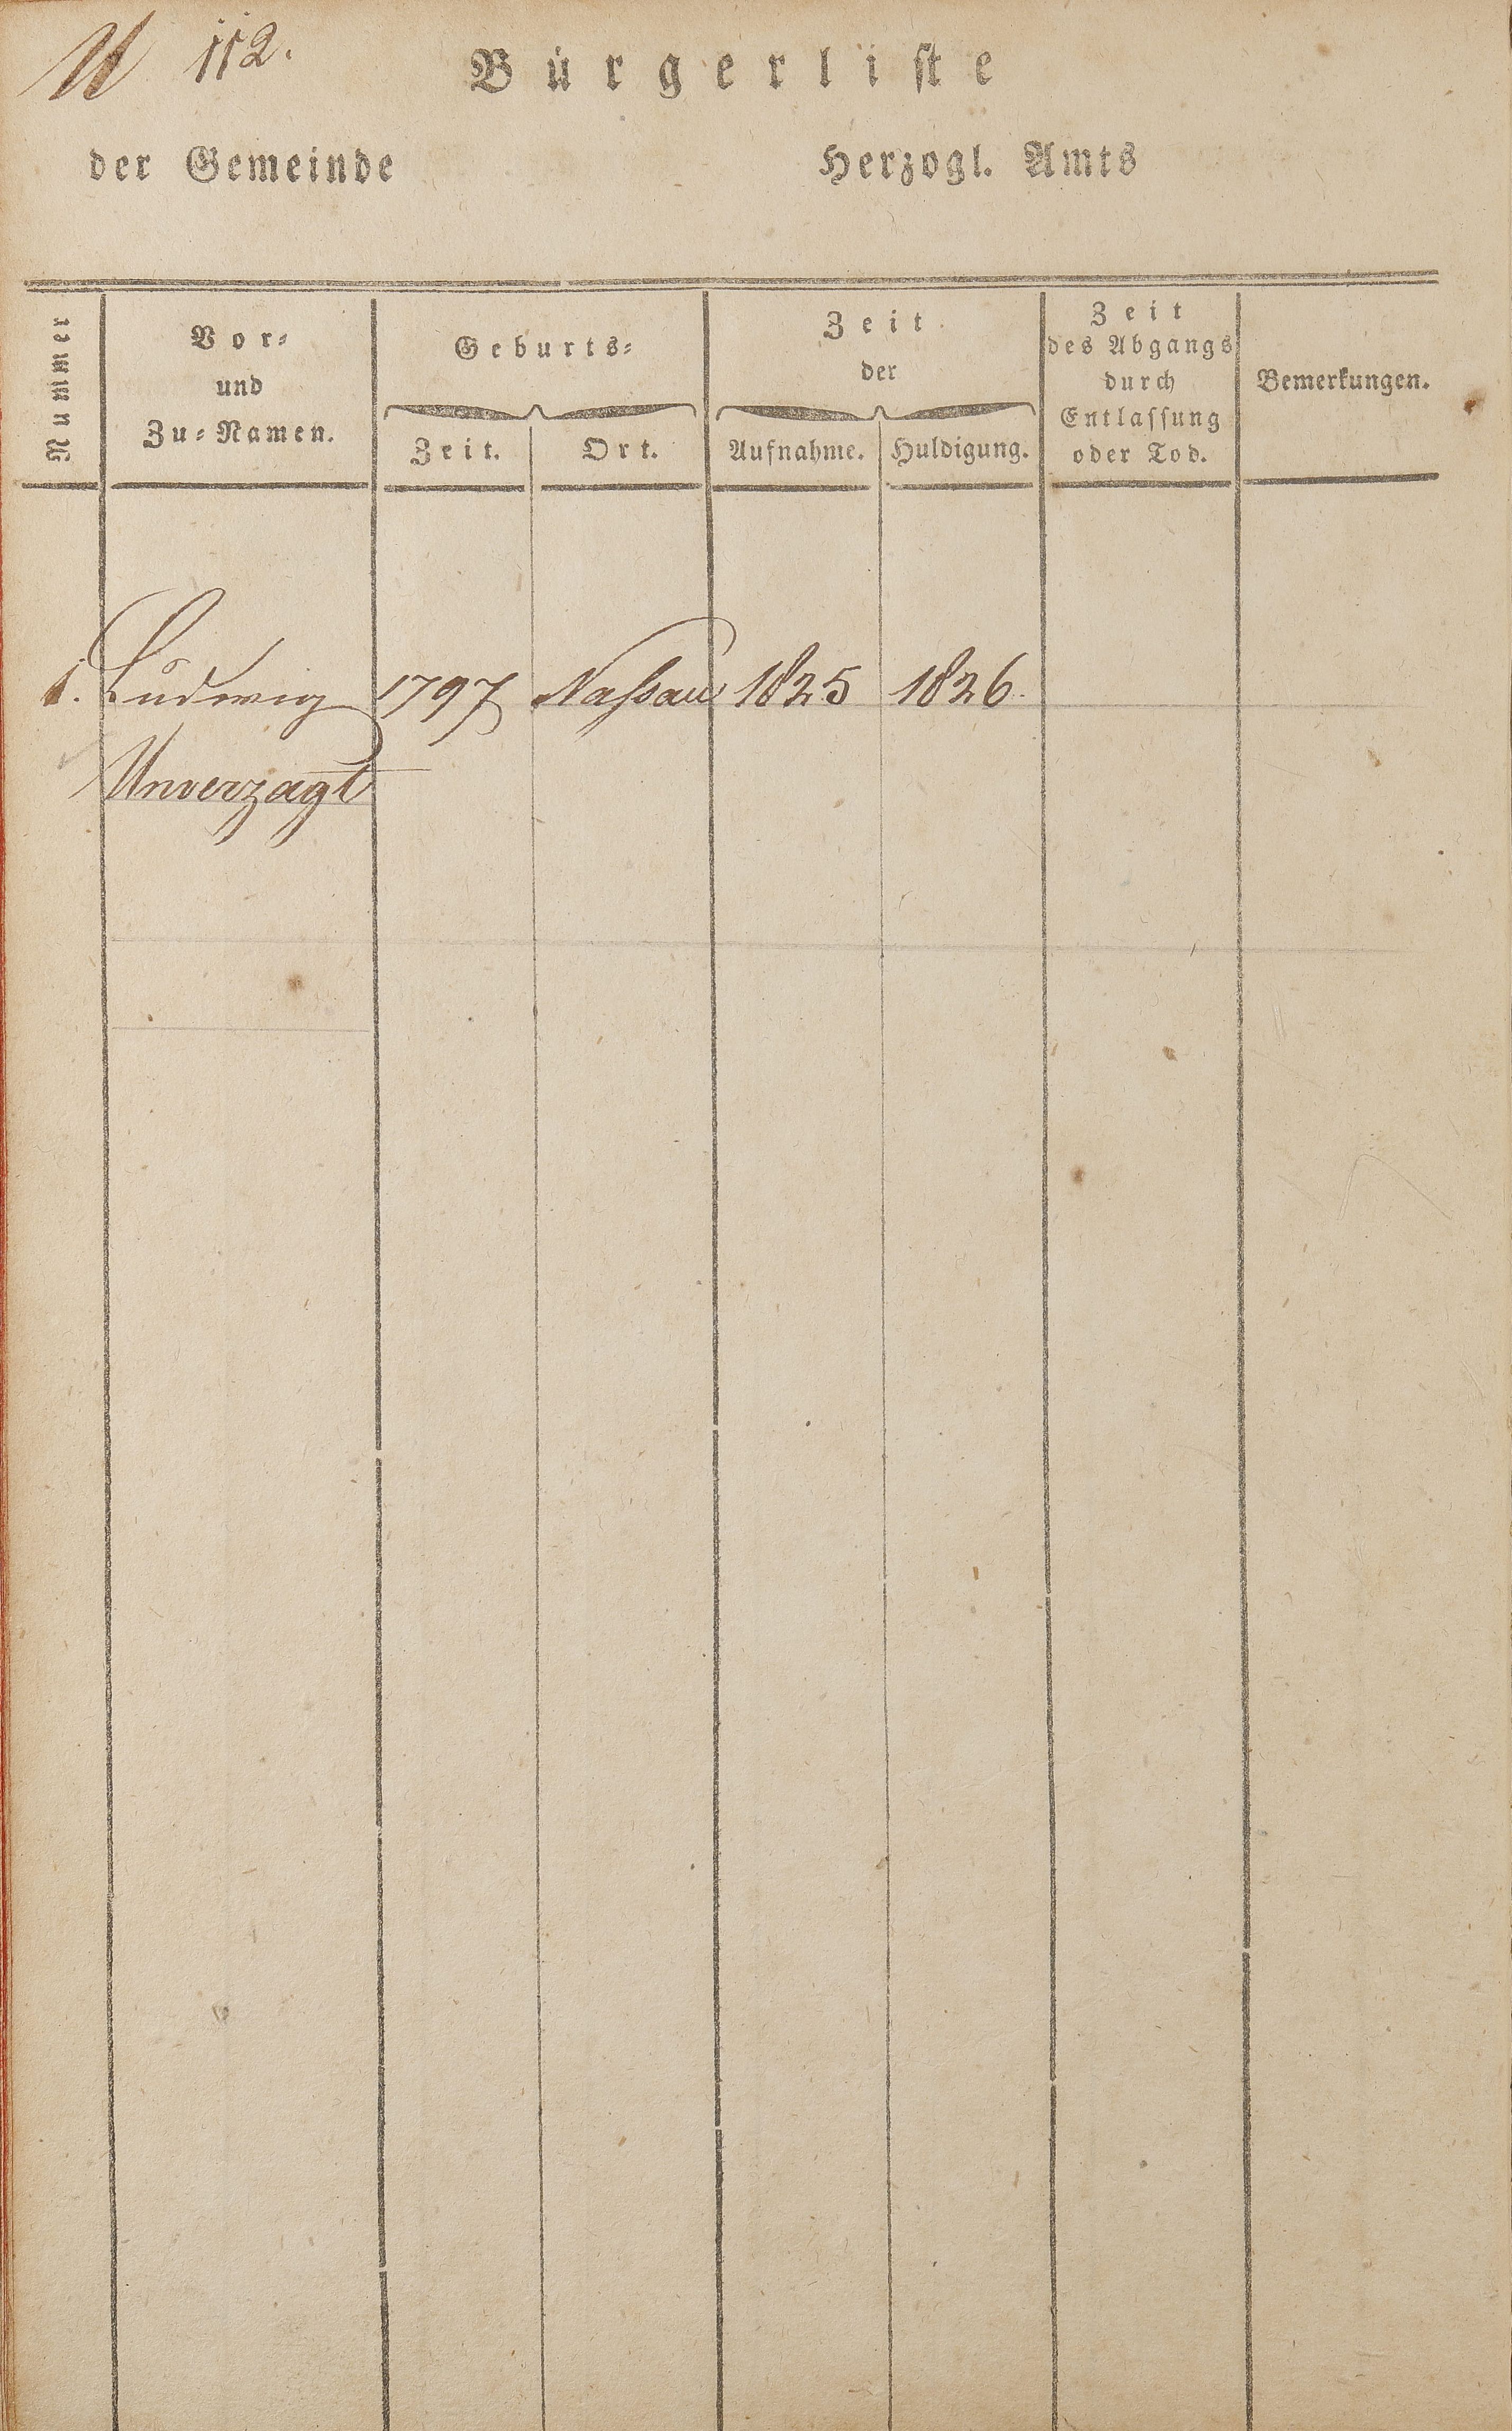 U 112.
Bürgerliste
der Gemeinde Herzogl. Amts
Nummer
Vor-
und
Zu-Namen.
Geburts-
Zeit. Ort.
Zeit
der
Aufnahme. Huldigung.
Zeit
des Abgangs
durch
Entlassung
oder Tod.
Bemerkungen.
1. Ludwig 1797 Naßau 1825 1826.
Unverzagt